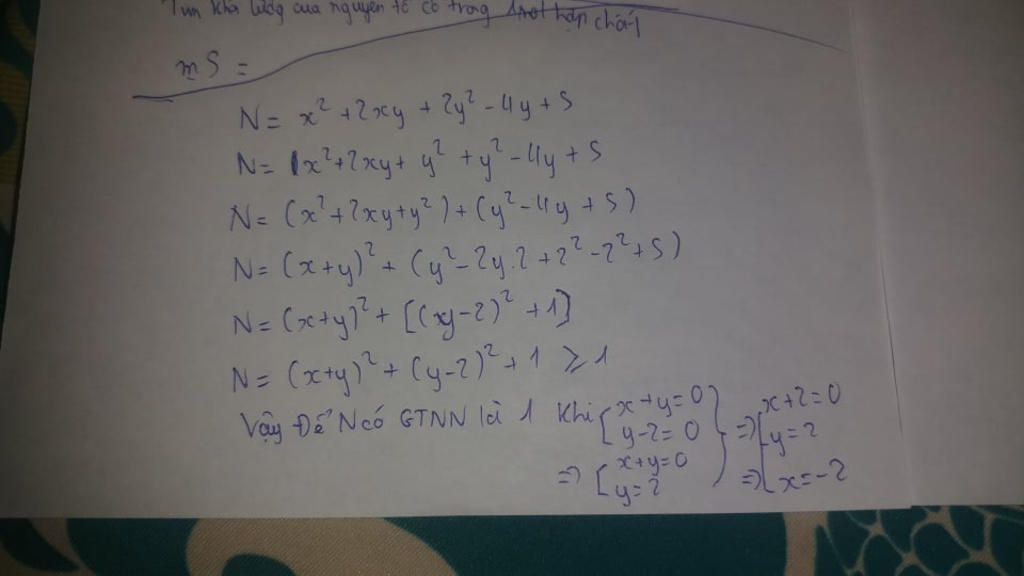 Tìm khối lượng của nguyên tố có trong 1 mol hợp chất
mS =
N = x² + 2xy + 2y² - 4y + 5
N = x² + 2xy + y² + y² - 4y + 5
N = (x² + 2xy + y²) + (y² - 4y + 5)
N = (x+y)² + (y² - 2y.2 + 2² - 2² + 5)
N = (x+y)² + [(y-2)² + 1]
N = (x+y)² + (y-2)² + 1 ≥ 1
Vậy Để N có GTNN là 1 Khi [x+y=0 } => [x+2=0
[y-2=0 } [y=2
=> [x+y=0 } => [x=-2
[y=2